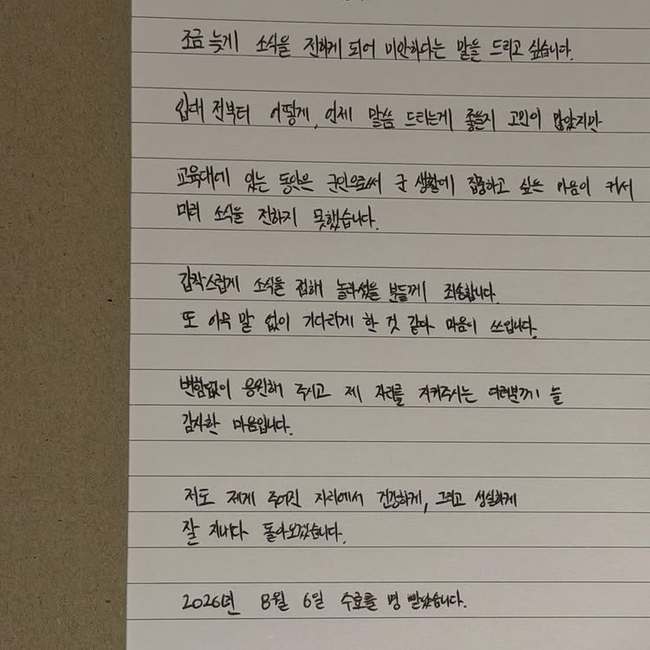 조금 늦게 소식을 전하게 되어 미안하다는 말을 드리고 싶습니다.
입대 전부터 어떻게, 언제 말씀 드리는게 좋을지 고민이 많았지만
교육대에 있는 동안은 군인으로써 군 생활에 집중하고 싶은 마음이 커서
미리 소식을 전하지 못했습니다.
갑작스럽게 소식을 접해 놀라셨을 분들께 죄송합니다.
또 아무 말 없이 기다리게 한 것 같다 마음이 쓰입니다.
변함없이 응원해 주시고 제 자리를 지켜주시는 여러분께 늘
감사한 마음입니다.
저도 제게 주어진 자리에서 건강하게, 그리고 성실하게
잘 지내다 돌아오겠습니다.
2026년 8월 6일 수호를 명 받았습니다.